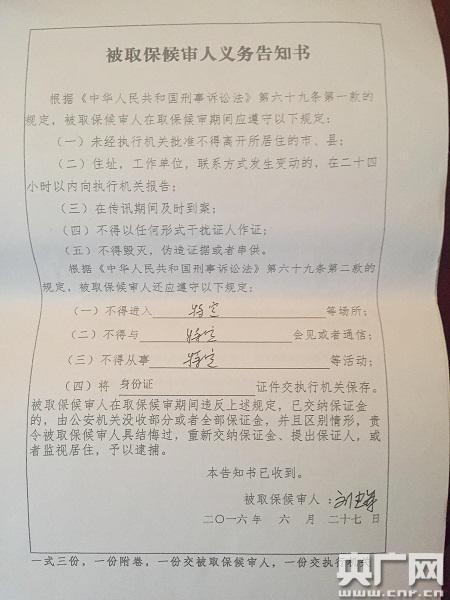 被取保候审人义务告知书
根据《中华人民共和国刑事诉讼法》第六十九条第一款的
规定，被取保候审人在取保候审期间应遵守以下规定：
（一）未经执行机关批准不得离开所居住的市、县；
（二）住址，工作单位，联系方式发生变动的，在二十四
小时以内向执行机关报告；
（三）在传讯期间及时到案；
（四）不得以任何形式干扰证人作证；
（五）不得毁灭，伪造证据或者串供。
根据《中华人民共和国刑事诉讼法》第六十九条第二款的
规定，被取保候审人还应遵守以下规定：
（一）不得进入 特定 等场所；
（二）不得与 特定 会见或者通信；
（三）不得从事 特定 等活动；
（四）将 身份证 证件交执行机关保存。
被取保候审人在取保候审期间违反上述规定，已交纳保证金
的，由公安机关没收部分或者全部保证金，并且区别情形，责
令被取保候审人具结悔过，重新交纳保证金、提出保证人，或
者监视居住，予以逮捕。
本告知书已收到。
被取保候审人：刘
二〇一六年 六 月 二十七 日
一式三份，一份附卷，一份交被取保候审人，一份交执行机关
央广网
www.cnr.cn